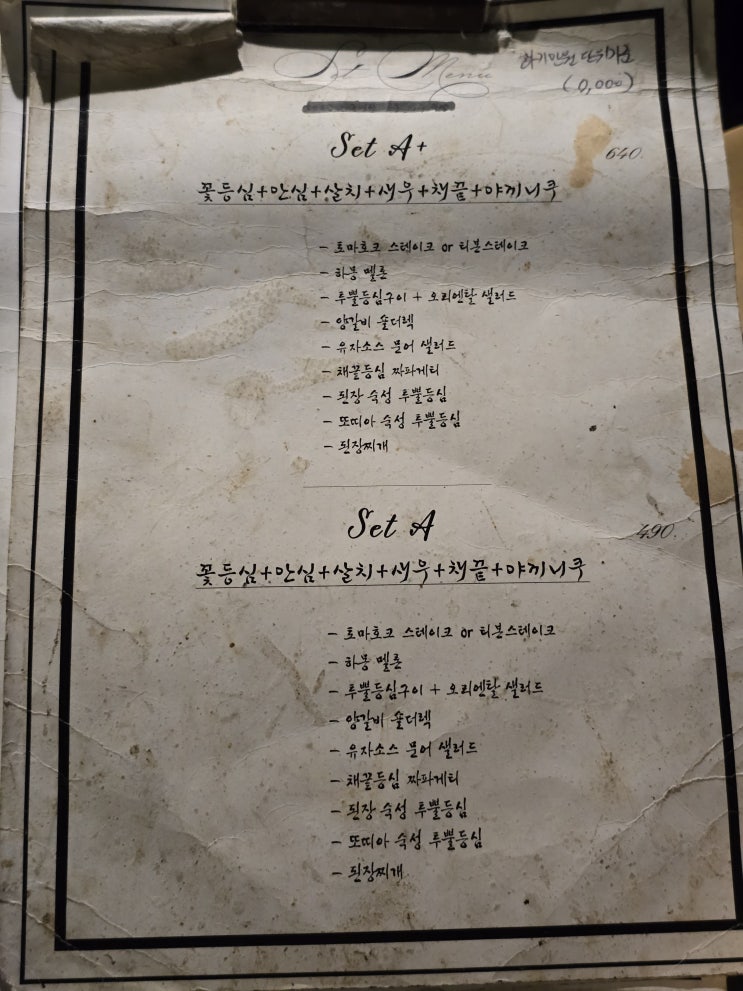 Set Menu
(0,000)
Set A+
640.
꽃등심+안심+살치+새우+채끝+야끼니쿠
- 토마호크 스테이크 or 티본스테이크
- 하몽 멜론
- 루뽈등심구이 + 오리엔탈 샐러드
- 양갈비 숄더렉
- 유자소스 문어 샐러드
- 채끝등심 짜파게티
- 된장 숙성 루뽈등심
- 또띠아 숙성 루뽈등심
- 된장찌개
Set A
490.
꽃등심+안심+살치+새우+채끝+야끼니쿠
- 토마호크 스테이크 or 티본스테이크
- 하몽 멜론
- 루뽈등심구이 + 오리엔탈 샐러드
- 양갈비 숄더렉
- 유자소스 문어 샐러드
- 채끝등심 짜파게티
- 된장 숙성 루뽈등심
- 또띠아 숙성 루뽈등심
- 된장찌개